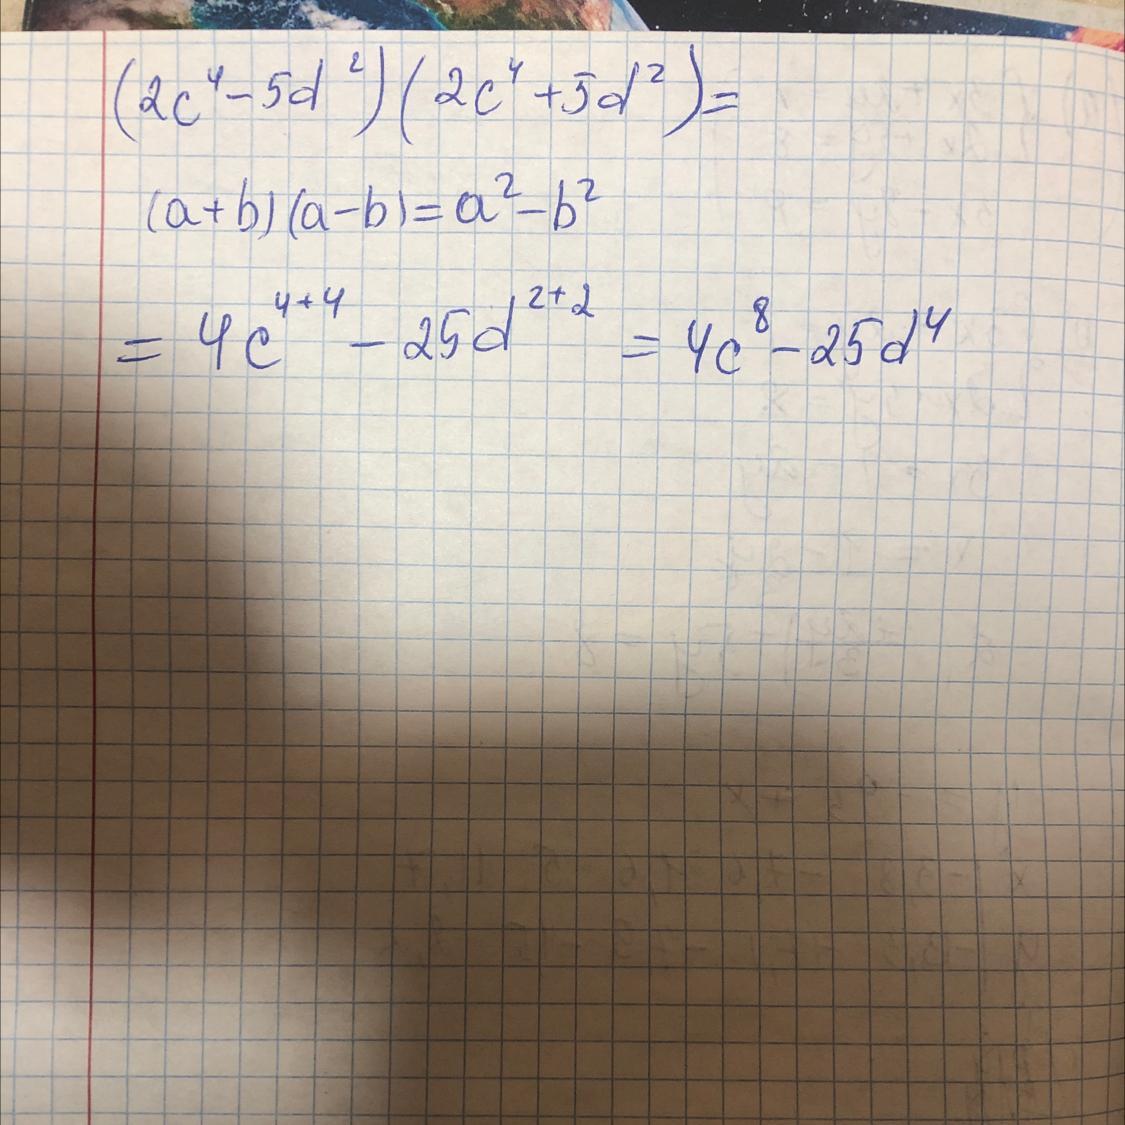 (2c⁴-5d²)(2c⁴+5d²)=
(a+b)(a-b)=a²-b²
= 4c⁴⁺⁴ - 25d²⁺² = 4c⁸-25d⁴